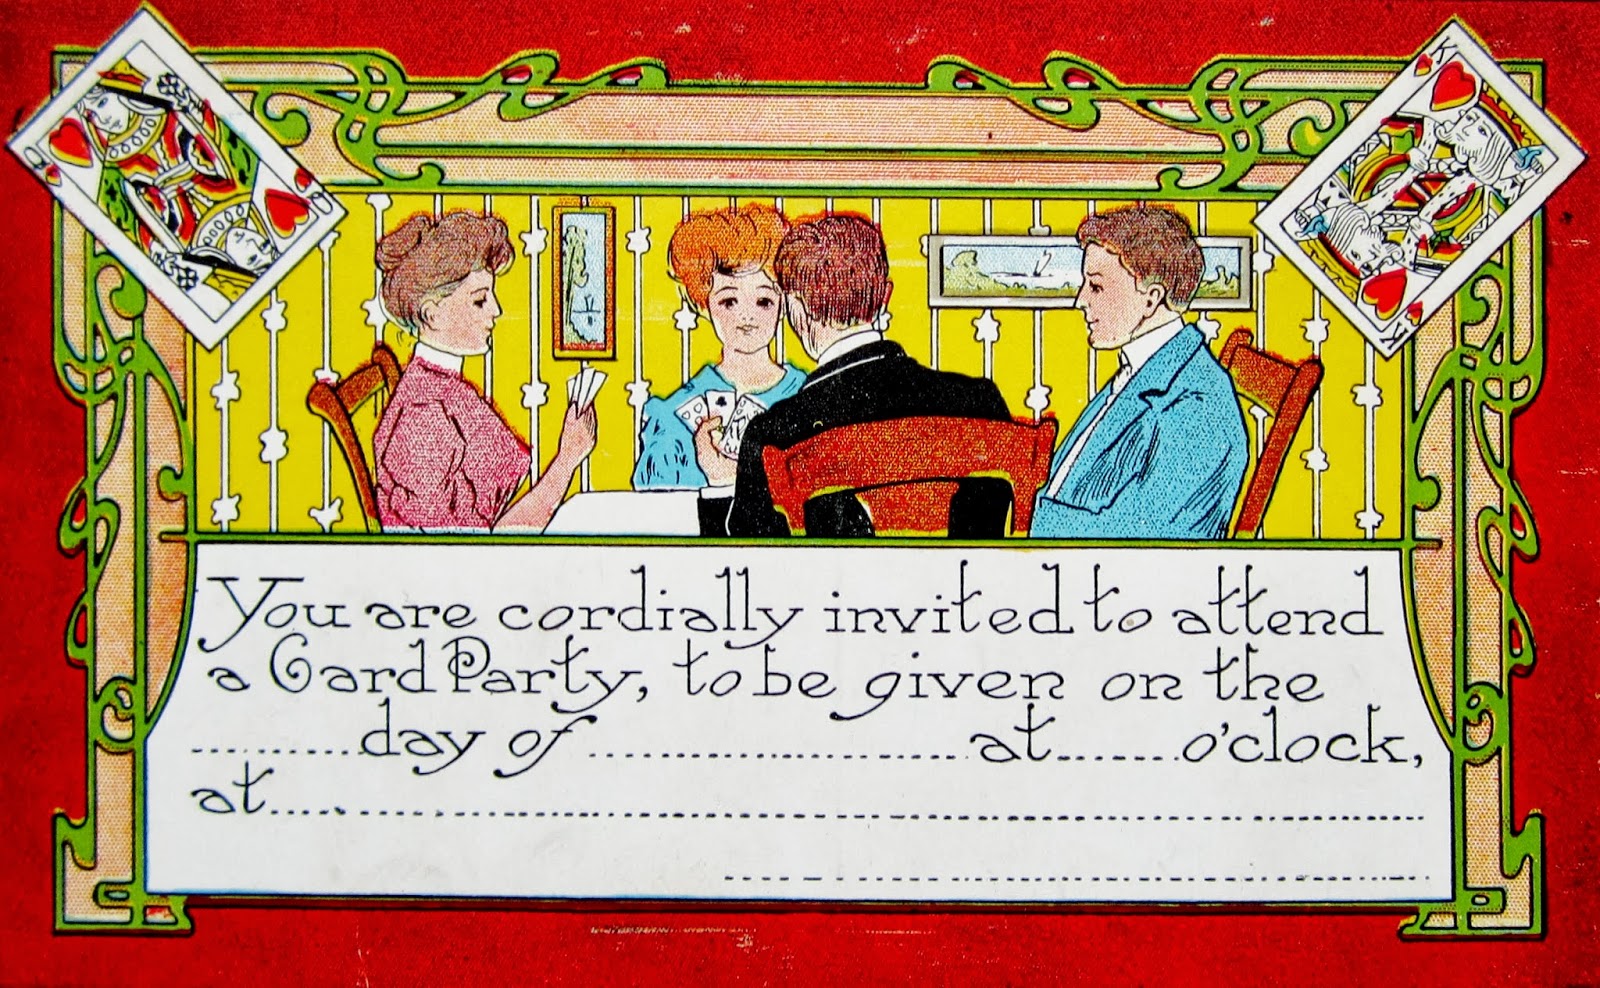 You are cordially invited to attend
a Card Party, to be given on the
..........day of ........................at........o'clock,
at................................................................................
Q
Q
K
K